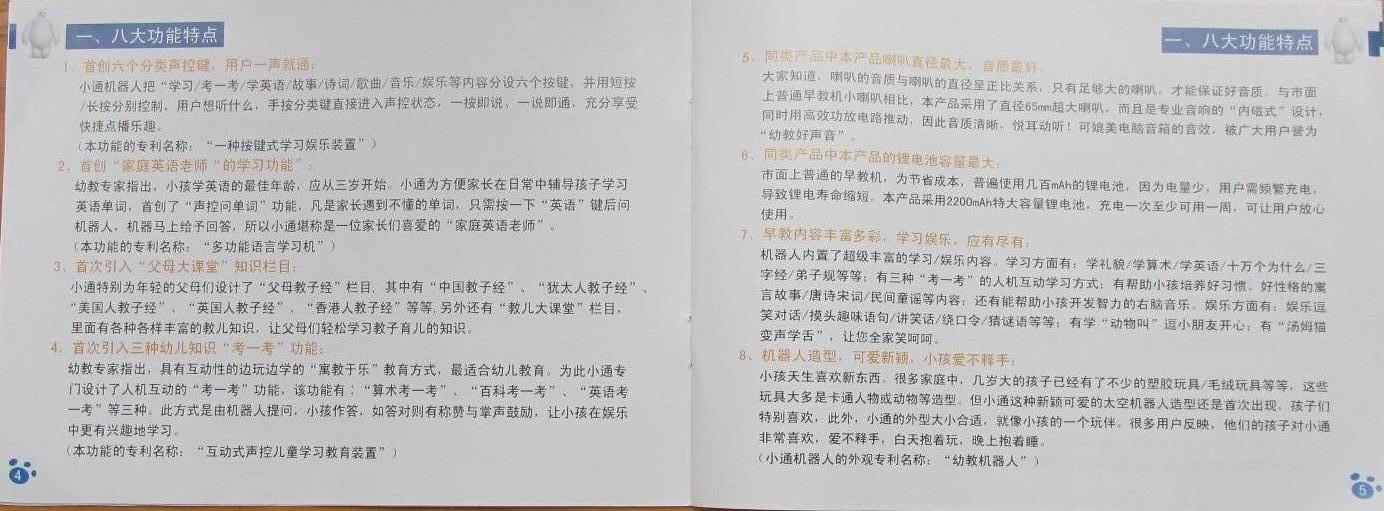 一、八大功能特点
1、首创六个分类声控键，用户一声就通：
小通机器人把“学习/考一考/学英语/故事/诗词/歌曲/音乐/娱乐等内容分设六个按键，并用短按
/长按分别控制，用户想听什么，手按分类键直接进入声控状态，一按即说，一说即通，充分享受
快捷点播乐趣。
（本功能的专利名称：“一种按键式学习娱乐装置”）
2、首创“家庭英语老师“的学习功能”：
幼教专家指出，小孩学英语的最佳年龄，应从三岁开始。小通为方便家长在日常中辅导孩子学习
英语单词，首创了“声控问单词”功能，凡是家长遇到不懂的单词，只需按一下“英语”键后问
机器人，机器马上给予回答，所以小通堪称是一位家长们喜爱的“家庭英语老师”。
（本功能的专利名称：“多功能语言学习机”）
3、首次引入“父母大课堂”知识栏目：
小通特别为年轻的父母们设计了“父母教子经”栏目，其中有“中国教子经”、“犹太人教子经”、
“美国人教子经”、“英国人教子经”、“香港人教子经”等等，另外还有“教儿大课堂”栏目，
里面有各种各样丰富的教儿知识，让父母们轻松学习教子育儿的知识。
4．首次引入三种幼儿知识“考一考”功能：
幼教专家指出，具有互动性的边玩边学的“寓教于乐”教育方式，最适合幼儿教育。为此小通专
门设计了人机互动的“考一考”功能，该功能有：“算术考一考”、“百科考一考”、“英语考
一考”等三种。此方式是由机器人提问，小孩作答，如答对则有称赞与掌声鼓励，让小孩在娱乐
中更有兴趣地学习。
（本功能的专利名称：“互动式声控儿童学习教育装置”）
4
一、八大功能特点
5、同类产品中本产品喇叭直径最大、音质最好。
大家知道，喇叭的音质与喇叭的直径呈正比关系，只有足够大的喇叭，才能保证好音质。与市面
上普通早教机小喇叭相比，本产品采用了直径65mm超大喇叭，而且是专业音响的“内磁式”设计，
同时用高效功放电路推动，因此音质清晰，悦耳动听！可媲美电脑音箱的音效，被广大用户誉为
“幼教好声音”。
6、同类产品中本产品的锂电池容量最大：
市面上普通的早教机，为节省成本，普遍使用几百mAh的锂电池，因为电量少，用户需频繁充电，
导致锂电寿命缩短。本产品采用2200mAh特大容量锂电池，充电一次至少可用一周，可让用户放心
使用。
7、早教内容丰富多彩，学习娱乐，应有尽有：
机器人内置了超级丰富的学习/娱乐内容。学习方面有：学礼貌/学算术/学英语/十万个为什么/三
字经/弟子规等等；有三种“考一考”的人机互动学习方式；有帮助小孩培养好习惯、好性格的寓
言故事/唐诗宋词/民间童谣等内容；还有能帮助小孩开发智力的右脑音乐。娱乐方面有：娱乐逗
笑对话/摸头趣味语句/讲笑话/绕口令/猜谜语等等；有学“动物叫”逗小朋友开心；有“汤姆猫
变声学舌”，让您全家笑呵呵。
8、机器人造型，可爱新颖，小孩爱不释手：
小孩天生喜欢新东西。很多家庭中，几岁大的孩子已经有了不少的塑胶玩具/毛绒玩具等等，这些
玩具大多是卡通人物或动物等造型。但小通这种新颖可爱的太空机器人造型还是首次出现，孩子们
特别喜欢，此外，小通的外型大小合适，就像小孩的一个玩伴。很多用户反映，他们的孩子对小通
非常喜欢，爱不释手，白天抱着玩，晚上抱着睡。
（小通机器人的外观专利名称：“幼教机器人”）
5